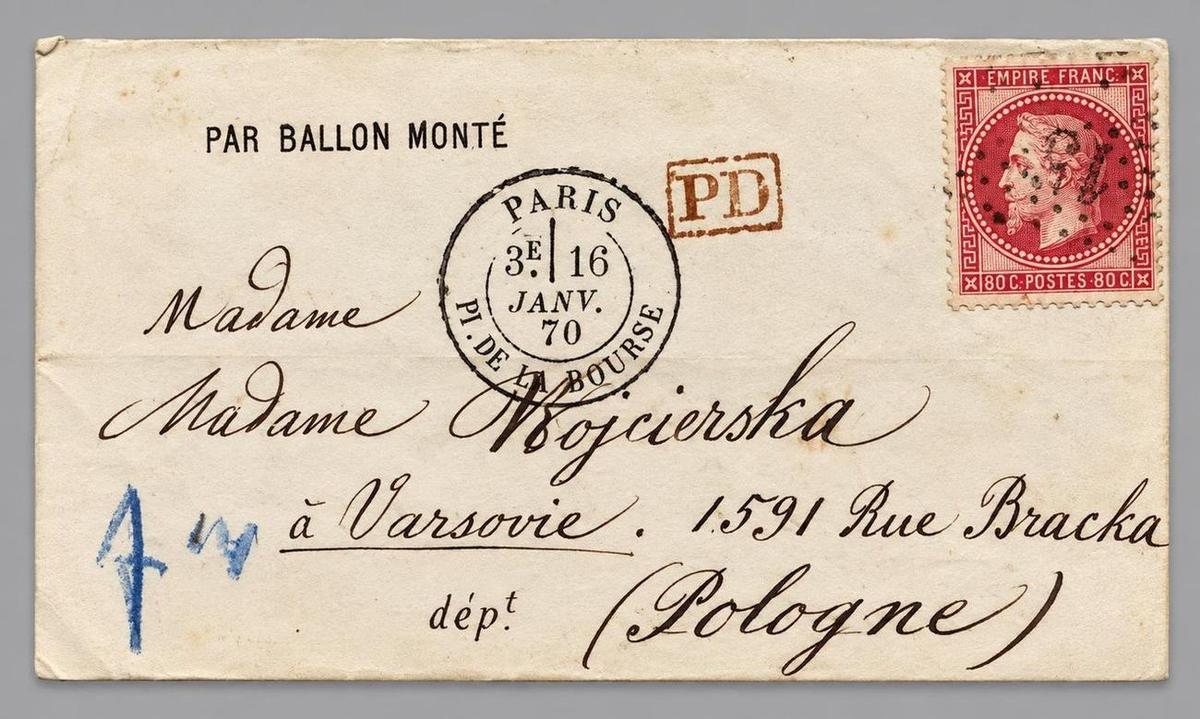 PAR BALLON MONTÉ
EMPIRE FRANC.
80 C. POSTES 80 C.
PARIS
3E 16
JANV.
70
Pl. DE LA BOURSE
PD
Madame
Madame Wojcierska
à Varsovie. 1591 Rue Bracka
dépt. (Pologne)